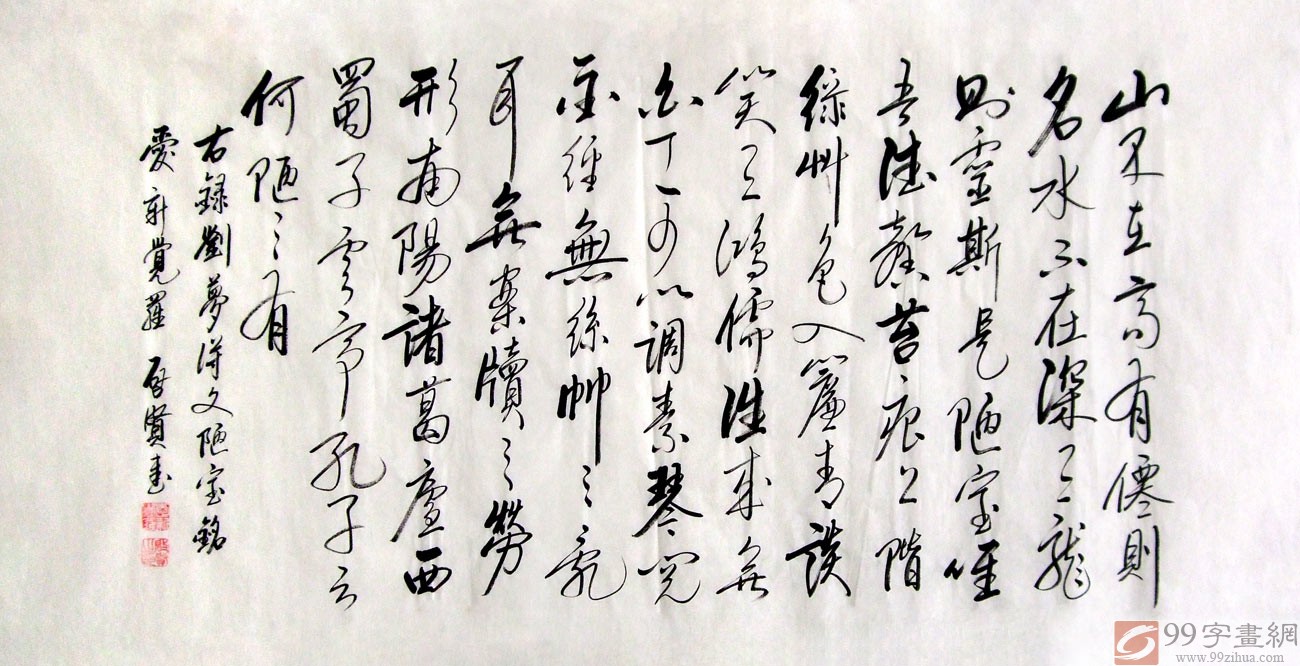 山不在高有僊則
名水不在深有龍
則靈斯是陋室唯
吾德馨苔痕上階
綠艸色入簾青談
笑有鴻儒往來無
白丁可以調素琴閱
金經無絲竹之亂
耳無案牘之勞
形南陽諸葛廬西
蜀子雲亭孔子云
何陋之有
右録劉夢得文陋室銘
愛新覺羅 啓賢書
99字畫網
www.99zihua.com